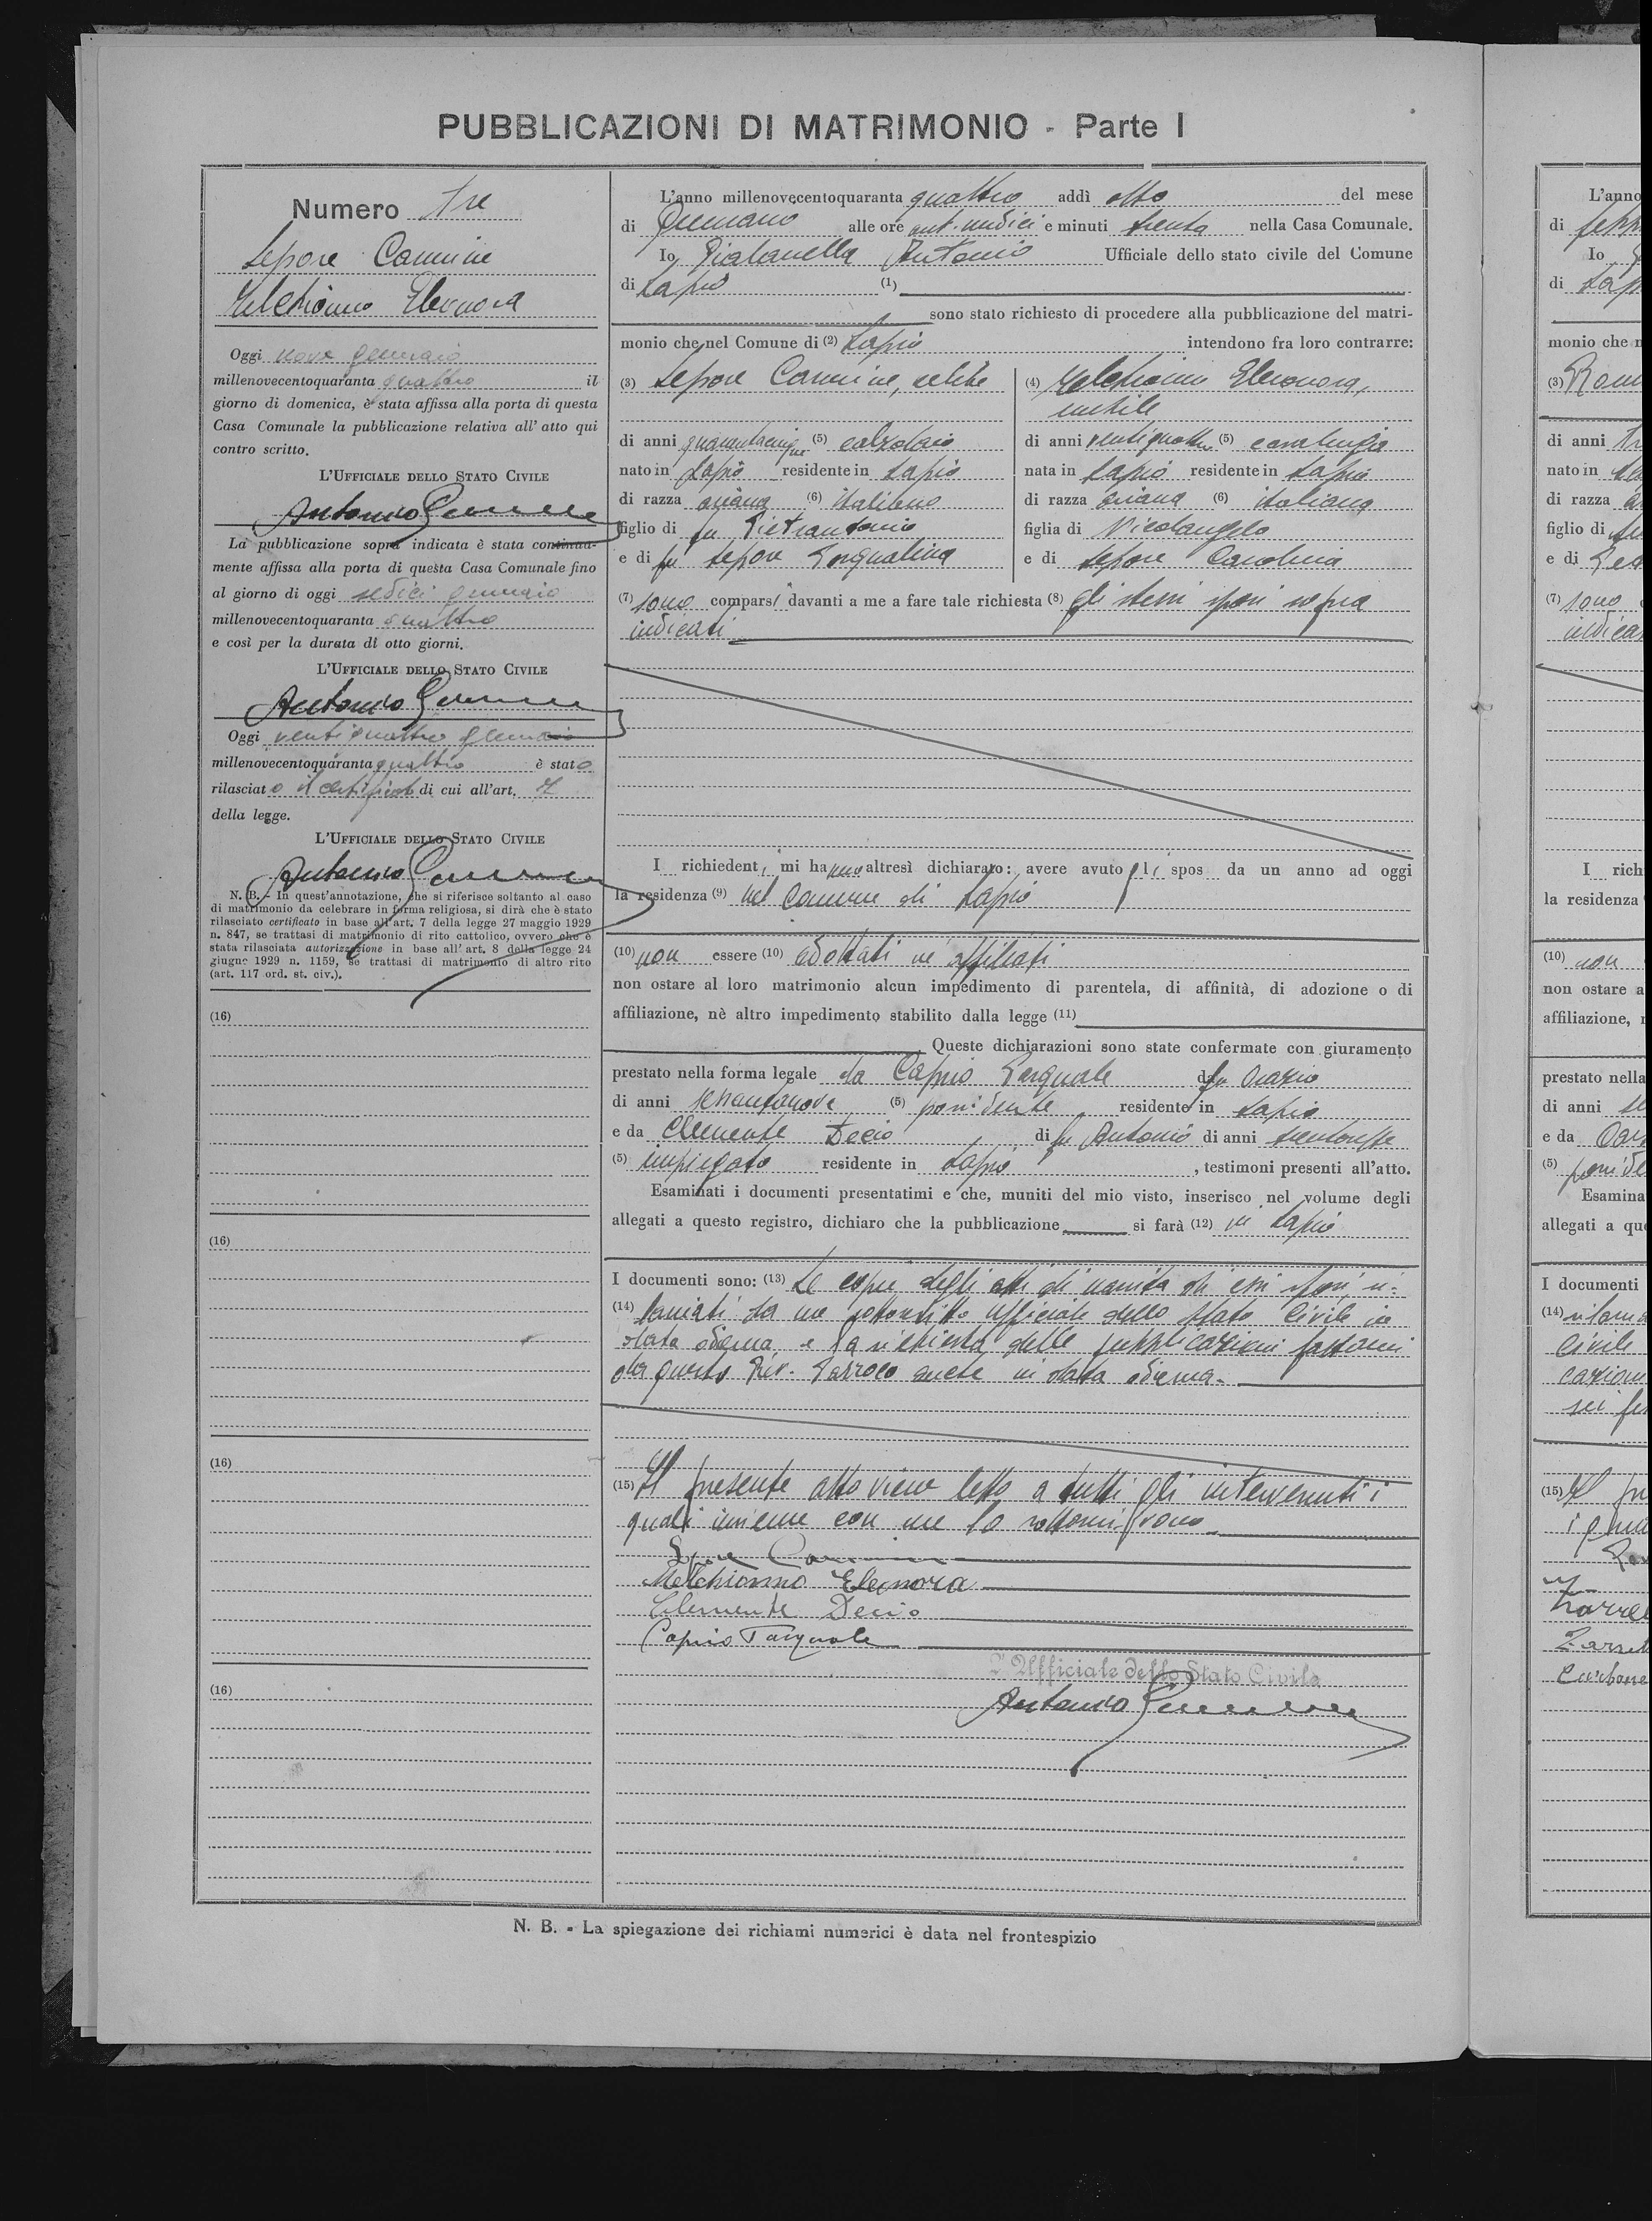 PUBBLICAZIONI DI MATRIMONIO - Parte I
Numero tre
Lepore Carmine
Melchionno Eleonora
Oggi nove gennaio
millenovecentoquaranta quattro il
giorno di domenica, è stata affissa alla porta di questa
Casa Comunale la pubblicazione relativa all'atto qui
contro scritto.
L'UFFICIALE DELLO STATO CIVILE
Antonio
La pubblicazione sopra indicata è stata continua-
mente affissa alla porta di questa Casa Comunale fino
al giorno di oggi sedici gennaio
millenovecentoquaranta quattro
e così per la durata di otto giorni.
L'UFFICIALE DELLO STATO CIVILE
Antonio
Oggi ventiquattro gennaio
millenovecentoquaranta quattro è stato
rilasciato il certificato di cui all'art. 7
della legge.
L'UFFICIALE DELLO STATO CIVILE
Antonio
N. B. - In quest'annotazione, che si riferisce soltanto al caso
di matrimonio da celebrare in forma religiosa, si dirà che è stato
rilasciato certificato in base all'art. 7 della legge 27 maggio 1929
n. 847, se trattasi di matrimonio di rito cattolico, ovvero che è
stata rilasciata autorizzazione in base all'art. 8 della legge 24
giugno 1929 n. 1159, se trattasi di matrimonio di altro rito
(art. 117 ord. st. civ.).
(16)
(16)
(16)
(16)
L'anno millenovecentoquaranta quattro addì otto del mese
di Gennaio alle ore ant. undici e minuti trenta nella Casa Comunale.
Io, Antonio Ufficiale dello stato civile del Comune
di Lapio (1)
sono stato richiesto di procedere alla pubblicazione del matri-
monio che nel Comune di (2) Lapio intendono fra loro contrarre:
(3) Lepore Carmine, celibe
di anni quarantacinque (5) calzolaio
nato in Lapio residente in Lapio
di razza ariana (6) italiano
figlio di fu Pietrantonio
e di fu Lepore Pasqualina
(4) Melchionno Eleonora,
nubile
di anni ventiquattro (5) casalinga
nata in Lapio residente in Lapio
di razza ariana (6) italiana
figlia di Nicolangelo
e di Lepore Carolina
(7) sono comparsi davanti a me a fare tale richiesta (8) gli stessi sposi sopra
indicati
I richiedenti mi hanno altresì dichiarato: avere avuto gli spos da un anno ad oggi
la residenza (9) nel Comune di Lapio
(10) non essere (10) adottati nè affiliati
non ostare al loro matrimonio alcun impedimento di parentela, di affinità, di adozione o di
affiliazione, nè altro impedimento stabilito dalla legge (11)
Queste dichiarazioni sono state confermate con giuramento
prestato nella forma legale da Caprio Pasquale di fu Orazio
di anni sessantanove (5) possidente residente in Lapio
e da Clemente Decio di fu Antonio di anni
(5) impiegato residente in Lapio, testimoni presenti all'atto.
Esaminati i documenti presentatimi e che, muniti del mio visto, inserisco nel volume degli
allegati a questo registro, dichiaro che la pubblicazione si farà (12) in Lapio
I documenti sono: (13) Le copie degli atti di nascita di essi sposi ri-
(14) lasciati da me sottoscritto ufficiale dello stato Civile in
data odierna e la richiesta delle pubblicazioni fattami
da questo Rev. Parroco anche in data odierna.
(15) Il presente atto viene letto a tutti gli intervenuti i
quali insieme con me lo sottoscrivono.
Lepore Carmine
Melchionno Eleonora
Clemente Decio
Caprio Pasquale
L'Ufficiale dello Stato Civile
Antonio
N. B. - La spiegazione dei richiami numerici è data nel frontespizio
L'anno
di
Io
di
monio che n
(3)
di anni
nato in
di razza
figlio di
e di
(7) sono
I rich
la residenza
(10) non
non ostare a
affiliazione,
prestato nella
di anni
e da
(5)
Esamina
allegati a qu
I documenti
(14)
Civile
(15) Il